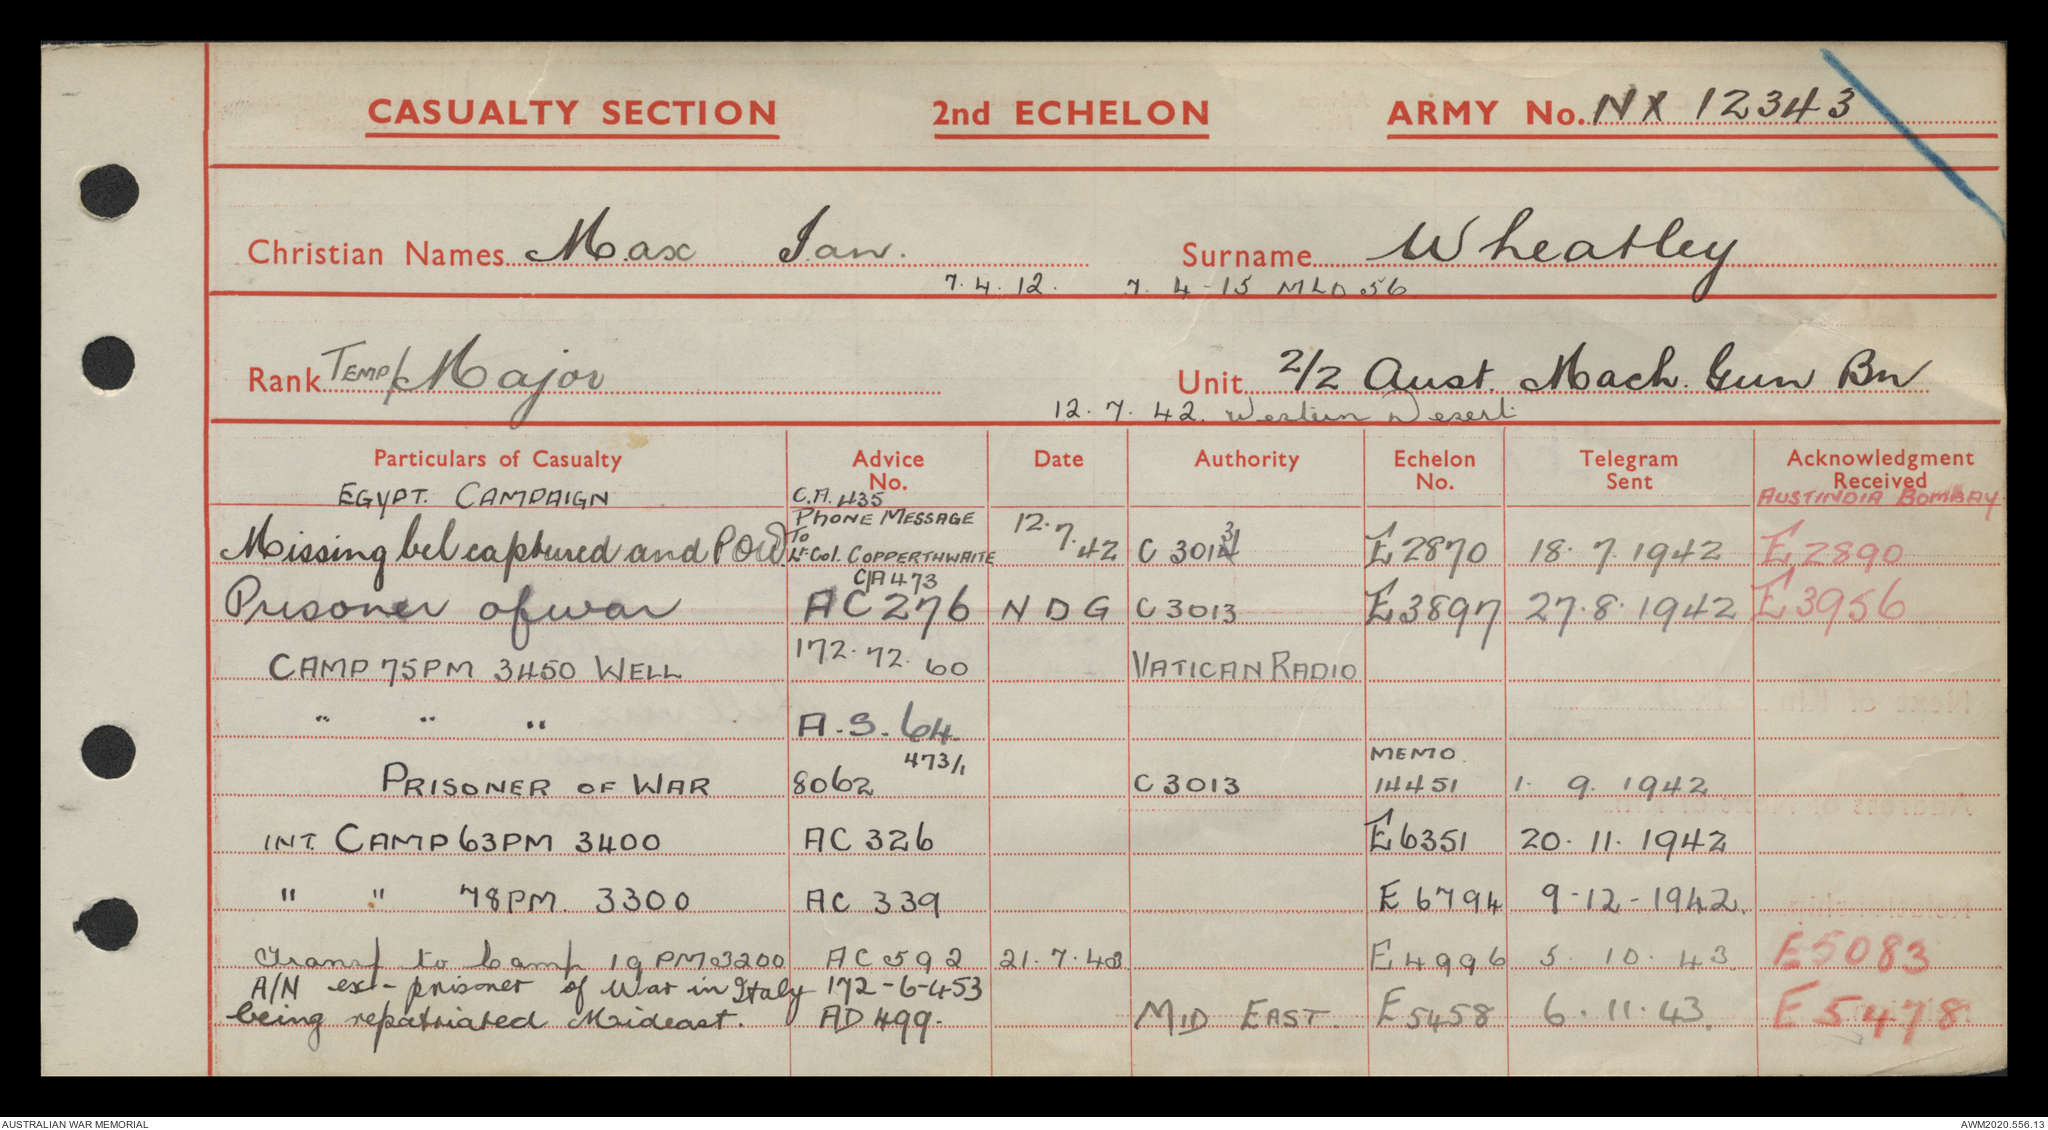 CASUALTY SECTION 2nd ECHELON ARMY No. NX 12343
Christian Names Max Ian. Surname Wheatley
7.4.12. 7.4-15 MLD 56
Rank Temp/Major Unit 2/2 Aust. Mach. Gun Bn
12.7.42. Western Desert
Particulars of Casualty Advice No. Date Authority Echelon No. Telegram Sent Acknowledgment Received
EGYPT. CAMPAIGN C.A. 435 AUSTINDIA BOMBAY
PHONE MESSAGE
Missing bel captured and POW To Lt-Col. COPPERTHWAITE 12.7.42 C 3013 E2870 18.7.1942 E2890
C/A 473
Prisoner of war AC 276 NDG C 3013 E3897 27.8.1942 E3956
CAMP 75PM 3450 WELL 172.72.60 VATICAN RADIO
" " " A.S. 64.
473/1 MEMO
PRISONER OF WAR 8062 C 3013 14451 1.9.1942
INT. CAMP 63PM 3400 AC 326 E6351 20.11.1942
" " 78PM. 3300 AC 339 E 6794 9-12-1942.
Transf to Camp 19 PM 3200 AC 592 21.7.43 E4996 5.10.43 E5083
A/N ex-prisoner of War in Italy 172-6-453
being repatriated Mideast. AD 499. MID EAST. E5458 6.11.43. E5478
AUSTRALIAN WAR MEMORIAL AWM2020.556.13